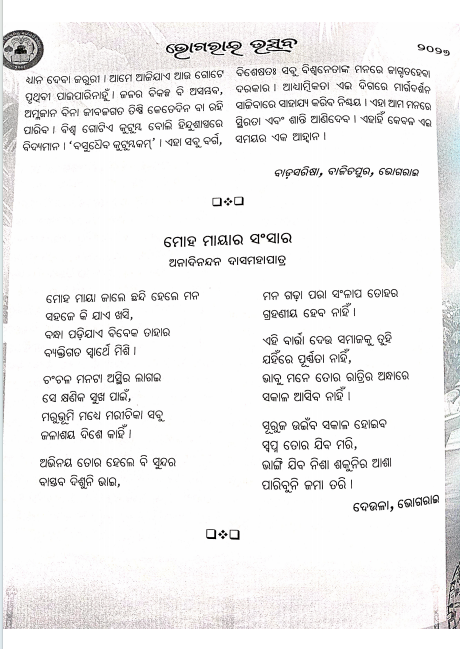 ଭୋଗରାଇ ଭୂମିବ
୨୦୨୭
ଧ୍ୟାନ ଦେବା ଜରୁରୀ । ଆମେ ଆଜିଯାଏ ଆଉ ଗୋଟେ
ପୃଥିବୀ ପାଇପାରିନାହୁଁ । ଜଳର ବିକଳ୍ପ ବି ଅସମ୍ଭବ,
ଅମ୍ଳଜାନ ବିନା ଜୀବଜଗତ ତିଷ୍ଠି କେତେଦିନ ବା ରହି
ପାରିବ । ବିଶ୍ୱ ଗୋଟିଏ କୁଟୁମ୍ବ ବୋଲି ହିନ୍ଦୁଶାସ୍ତ୍ରରେ
ବିଦ୍ୟମାନ । ‘ବସୁଧୈବ କୁଟୁମ୍ବକମ୍’ । ଏହା ସବୁ ବର୍ଗ,
ବିଶେଷତଃ ସବୁ ବିଶ୍ୱନେତାଙ୍କ ମନରେ ଜାଗ୍ରତହେବା
ଦରକାର । ଆଧ୍ୟାତ୍ମିକତା ଏଇ ଦିଗରେ ମାର୍ଗଦର୍ଶନ
ସାଜିବାରେ ସାହାଯ୍ୟ କରିବ ନିଶ୍ଚୟ । ଏହା ଆମ ମନରେ
ସ୍ଥିରତା ଏବଂ ଶାନ୍ତି ଆଣିଦେବ । ଏହାହିଁ କେବଳ ଏଇ
ସମୟର ଏକ ଆହ୍ୱାନ ।
ବାଡ଼ସରିଷା, ବାଳିଚପୁର, ଭୋଗରାଇ
ମୋହ ମାୟାର ସଂସାର
ଅନାଦିନନ୍ଦନ ଦାସମହାପାତ୍ର
ମୋହ ମାୟା ଜାଲେ ଛନ୍ଦି ହେଲେ ମନ
ସହଜେ କି ଯାଏ ଖସି,
ବନ୍ଧା ପଡ଼ିଯାଏ ବିବେକ ତାହାର
ବ୍ୟକ୍ତିଗତ ସ୍ୱାର୍ଥେ ମିଶି ।
ଚଂଚଳ ମନଟା ଅସ୍ଥିର ଲାଗଇ
ସେ କ୍ଷଣିକ ସୁଖ ପାଇଁ,
ମରୁଭୂମି ମଧ୍ୟେ ମରୀଚିକା ସବୁ
ଜଳାଶୟ ଦିଶେ କାହିଁ ।
ଅଭିନୟ ତୋର ହେଲେ ବି ସୁନ୍ଦର
ବାସ୍ତବ ଦିଶୁନି ଭାଇ,
ମନ ଗଢ଼ା ପରା ସଂଳାପ ତୋହର
ଗ୍ରହଣୀୟ ହେବ ନାହିଁ ।
ଏହି ବାର୍ତ୍ତା ଦେଉ ସମାଜକୁ ତୁହି
ଯହିଁରେ ପୂର୍ଣ୍ଣତା ନାହିଁ,
ଭାବୁ ମନେ ତୋର ରାତ୍ରିର ଅନ୍ଧାରେ
ସକାଳ ଆସିବ ନାହିଁ ।
ସୂରୁଜ ଉଇଁବ ସକାଳ ହୋଇବ
ସ୍ୱପ୍ନ ତୋର ଯିବ ମରି,
ଭାଙ୍ଗି ଯିବ ନିଶା ଶକୁନିର ଆଶା
ପାରିବୁନି ଜମା ତରି ।
ଦେଉଳା, ଭୋଗରାଇ